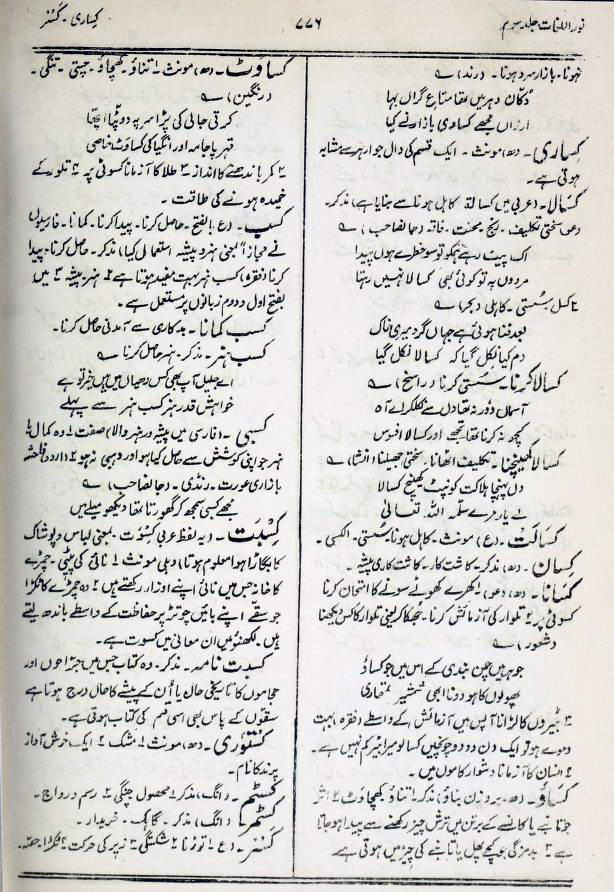 نور اللغات جلد سوم
۷۷۶
کساری - کسنر
ہونا - بازار سرد ہونا - (رند) ؎
دکان دہر میں تھا متاع گراں بہا
ارزاں مجھے کسادی بازار نے کیا
کساری - (ھ) مونث - ایک قسم کی دال جو ارہر سے مشابہ
ہوتی ہے -
کسالا - (عربی میں کسالۃ کاہل ہونا سے بنایا ہے) مذکر -
(عو) سختی تکلیف - رنج محنت - (جانصاحب) ؎
اک پیٹ رہے ہمکو تو سو خطرے ہوں پیدا
مردوں پہ تو کوئی بھی کسالا نہیں رہتا
۲ کسل سستی - کاہلی (بحر) ؎
بعد فنا ہوئی ہے جہاں گرد میری خاک
دم کیا نکل گیا کہ کسالا نکل گیا
کسالا کرنا - سستی کرنا (راسخ) ؎
آسماں دور نہ تھا دل سے نکلکر اے آہ
کچھ نہ کرنا تھا تجھے اور کسالا افسوس
کسالا کھینچنا - تکلیف اٹھانا - سختی جھیلنا (انشا) ؎
دل پہنچا ہلاکت کو نپٹ کھینچ کسالا
لے یار مرے سلمہ اللہ تعالیٰ
کسالت - (ع) مونث - کاہل ہونا سستی - الکسی -
کسان - (ھ) مذکر - کاشت کار - کاشتکاری پیشہ -
کسانا - (ھ) (عو) ۱ کھرے کھوٹے سونے کا امتحان کرنا
کسوٹی پر ۲ تلوار کی آزمائش کرنا - جھکا کر یعنی تلوار کا کس دیکھنا
(شعور) ؎
جوہر ہیں چین بندی کے اس میں جو کساؤ
پھولوں کا ہو دونا ابھی شمشیر
۳ بٹیروں کا لڑانا آپس میں آزمائش کے واسطے (فقرہ) بہت
دعوے ہو تو ایک دن دو دو چونچیں کسا لو میرا بٹیر کم نہیں ہے -
۴ انسان کا آزمانا دشوار کاموں میں -
کساؤ - (ھ - بر وزن بناؤ) مذکر ۱ تناؤ کھچاؤ ۲ اثر
جو تانبے یا کانسے کے برتن میں ترش چیز رکھنے سے پیدا ہو جاتا
ہے ۳ بدمزگی جو کچے پھل یا تانبے کی چیز میں ہوتی ہے
کساوٹ - (ھ) مونث ۱ تناؤ کھچاؤ چستی - تنگی -
(رنگین) ؎
کرتی جالی کی پڑا سر پہ دوپٹا اچھا
قہر پاجامہ اور انگیا کی کساوٹ خاصی
۲ کمر باندھنے کا انداز ۳ طلا کا آزمانا کسوٹی پر ۴ تلوار کے
خمیدہ ہونے کی طاقت -
کسب - (ع) بالفتح - حاصل کرنا - پیدا کرنا - کمانا - فارسیوں
نے مجازاً بمعنی ہنر و پیشہ استعمال کیا) مذکر - حاصل کرنا - پیدا
کرنا (فقرہ) کسب ہنر بہت مفید ہوتا ہے ۲ ہنر پیشہ ۳ میں
بفتح اول و دوم زبانوں پر مستعمل ہے -
کسب کمانا - بدکاری سے آمدنی حاصل کرنا -
کسب ہنر - مذکر - ہنر حاصل کرنا ؎
اے جلیل آپ بھی کس دھیان میں ہیں خیر تو ہے
خواہش قدر ہنر کسب ہنر سے پہلے
کسبی - (فارسی میں پیشہ ور ہنر والا) صفت ۱ وہ کمال یا
ہنر جو اپنی کوشش سے حاصل کیا ہو اور وہبی نہ ہو ۲ (اردو) فاحشہ
بازاری عورت - رنڈی - (جانصاحب) ؎
مجھے کسبی سمجھ کر گھورتا تھا دیکھو میلے میں
کسبت - (یہ لفظ عربی کسوت بمعنی لباس و پوشاک
کا بگاڑا ہوا معلوم ہوتا) دہلی مونث ۱ نائی کی پیٹی - چمڑے
کا خانہ جس میں نائی اپنے اوزار رکھتے ہیں ۲ وہ چمڑے کا ٹکڑا
جو سقے اپنے بائیں چوتڑ پر حفاظت کے واسطے باندھ لیتے
ہیں - لکھنؤ میں ان معانی میں کسوت ہے -
کسبت نامہ - مذکر - وہ کتاب جس میں جراحوں اور
حجاموں کا تاریخی حال یا ان کے پیشے کا حال درج ہوتا ہے
سقوں کے پاس بھی اسی قسم کی کتاب ہوتی ہے -
کستوری - (ھ) مونث ۱ مشک ۲ ایک خوش آواز
پرند کا نام -
کسٹم - (انگ) مذکر ۱ محصول چنگی ۲ رسم و رواج -
کسٹمر - (انگ) مذکر - گاہک - خریدار -
کسر - (ع) ۱ توڑنا ۲ شکستگی ۳ زیر کی حرکت ۴ ٹکڑا حصہ -